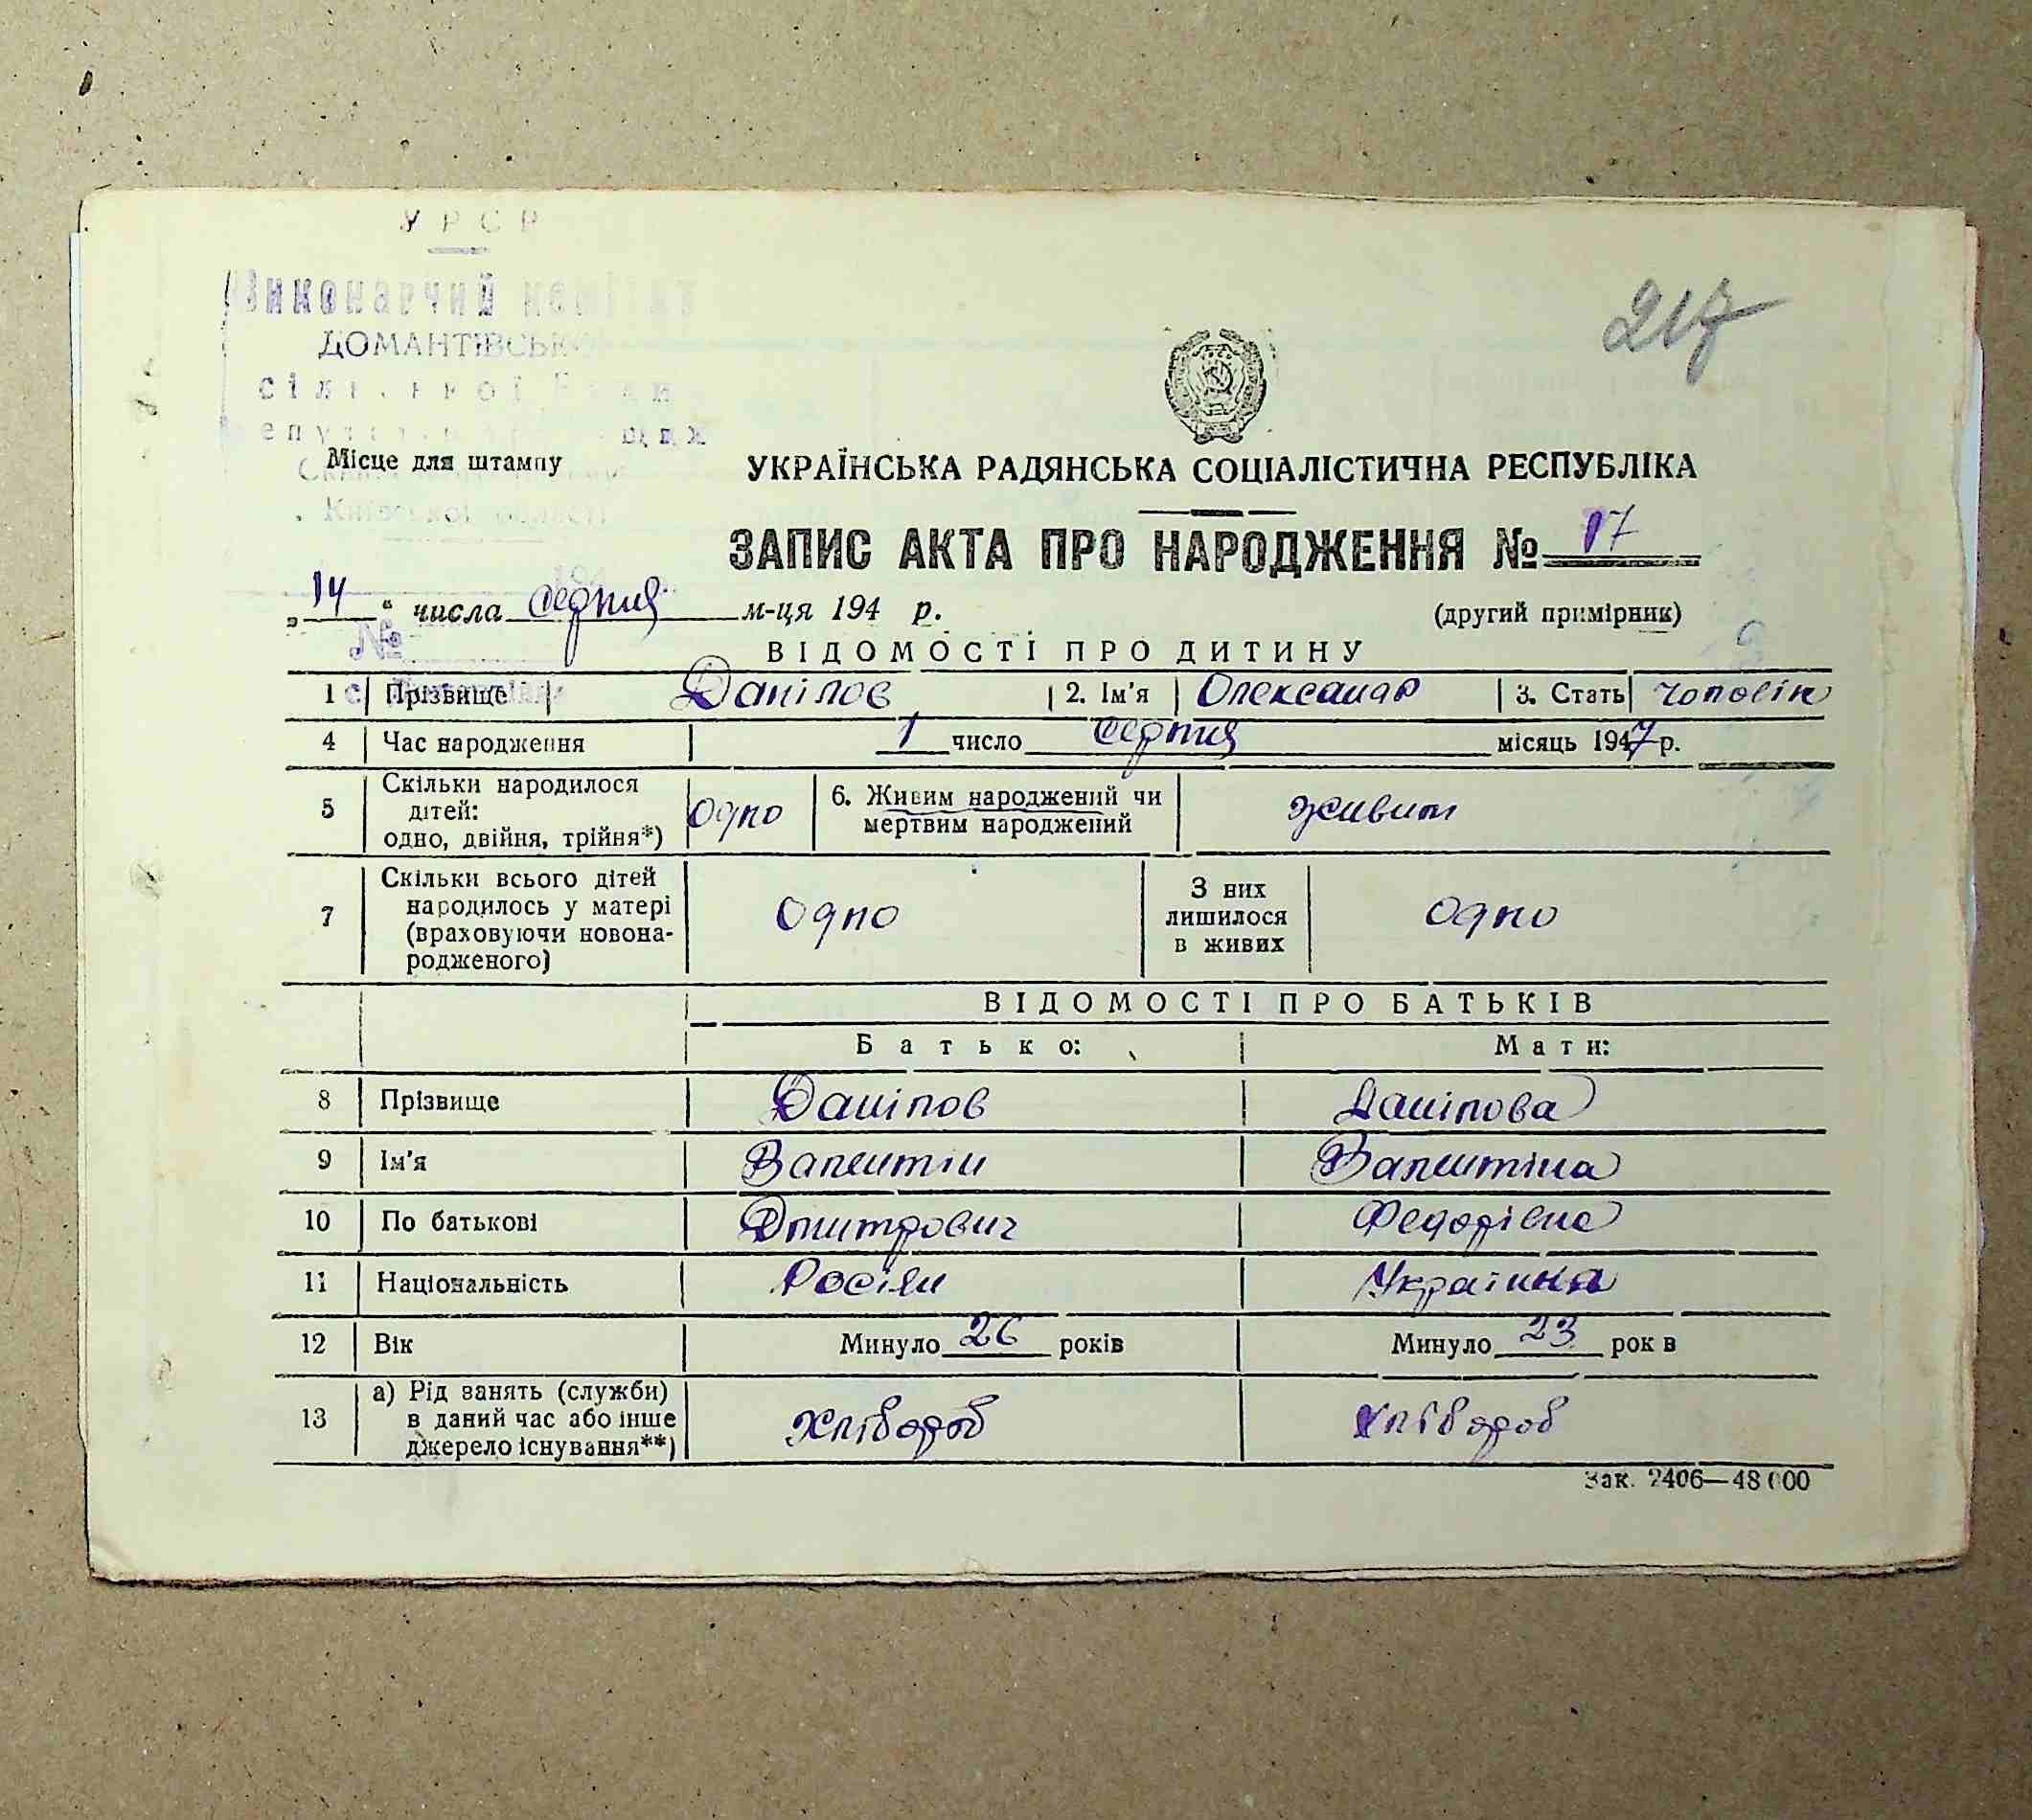 УРСР
Виконавчий комітет
ДОМАНТІВСЬКО
сіл ної Ради
Місце для штампу
Київської області
217
УКРАЇНСЬКА РАДЯНСЬКА СОЦІАЛІСТИЧНА РЕСПУБЛІКА
ЗАПИС АКТА ПРО НАРОДЖЕННЯ № 17
„14“ числа серпня м-ця 194 р.
(другий примірник)
№
ВІДОМОСТІ ПРО ДИТИНУ
1 Прізвище Данілов 2. Ім'я Олександр 3. Стать чоловік
4 Час народження 1 число серпня місяць 1947 р.
5 Скільки народилося дітей: одно, двійня, трійня*) одно 6. Живим народжений чи мертвим народжений живим
7 Скільки всього дітей народилось у матері (враховуючи новона-родженого) одно З них лишилося в живих одно
ВІДОМОСТІ ПРО БАТЬКІВ
Батько: Мати:
8 Прізвище Данілов Данілова
9 Ім'я Валентін Валентіна
10 По батькові Дмитрович Федорівна
11 Національність Росіян Українка
12 Вік Минуло 26 років Минуло 23 рок в
13 а) Рід занять (служби) в даний час або інше джерело існування**) Хлібороб Хлібороб
Зак. 2406—48000